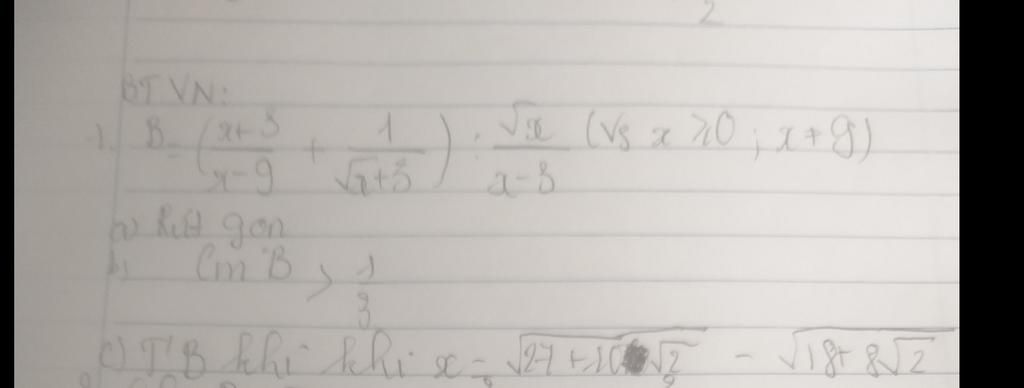 2
BTVN:
1. B = (x+3/x-9 + 1/√x+3) : √x/x-3 (Vs x ≥ 0; x ≠ 9)
a) Rút gọn
b) Cm B > 1/3
c) T' B khi khi x = √27+10√2 - √18+8√2